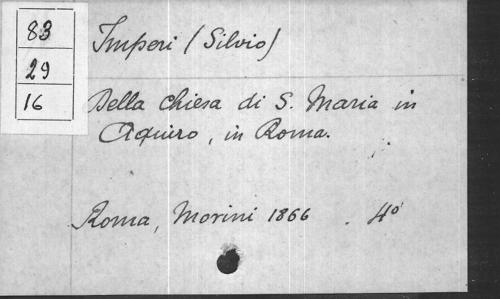 83
29
16
Imperi (Silvio)
Della Chiesa di S. Maria in
Aquiro, in Roma.
Roma, Morini 1866. 4º